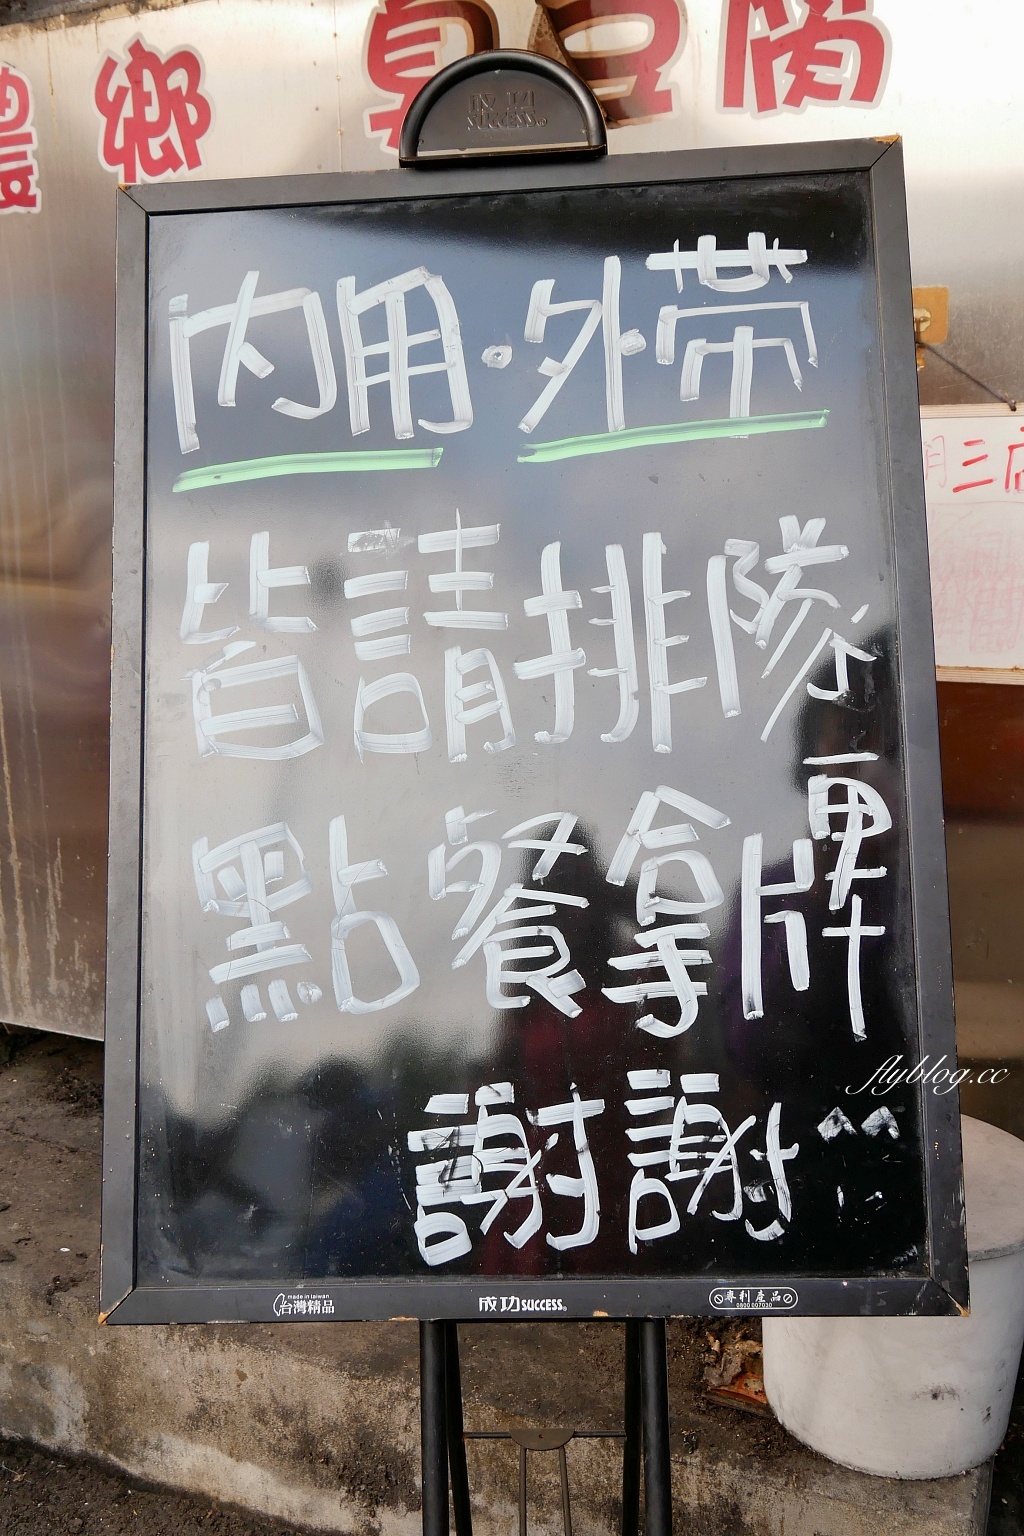 鄉 臭豆腐
成功
SUCCESS®
內用·外帶
皆請排隊
點餐拿牌
謝謝^^
flyblog.cc
made in taiwan
台灣精品
成功SUCCESS®
專利產品
0800 007030